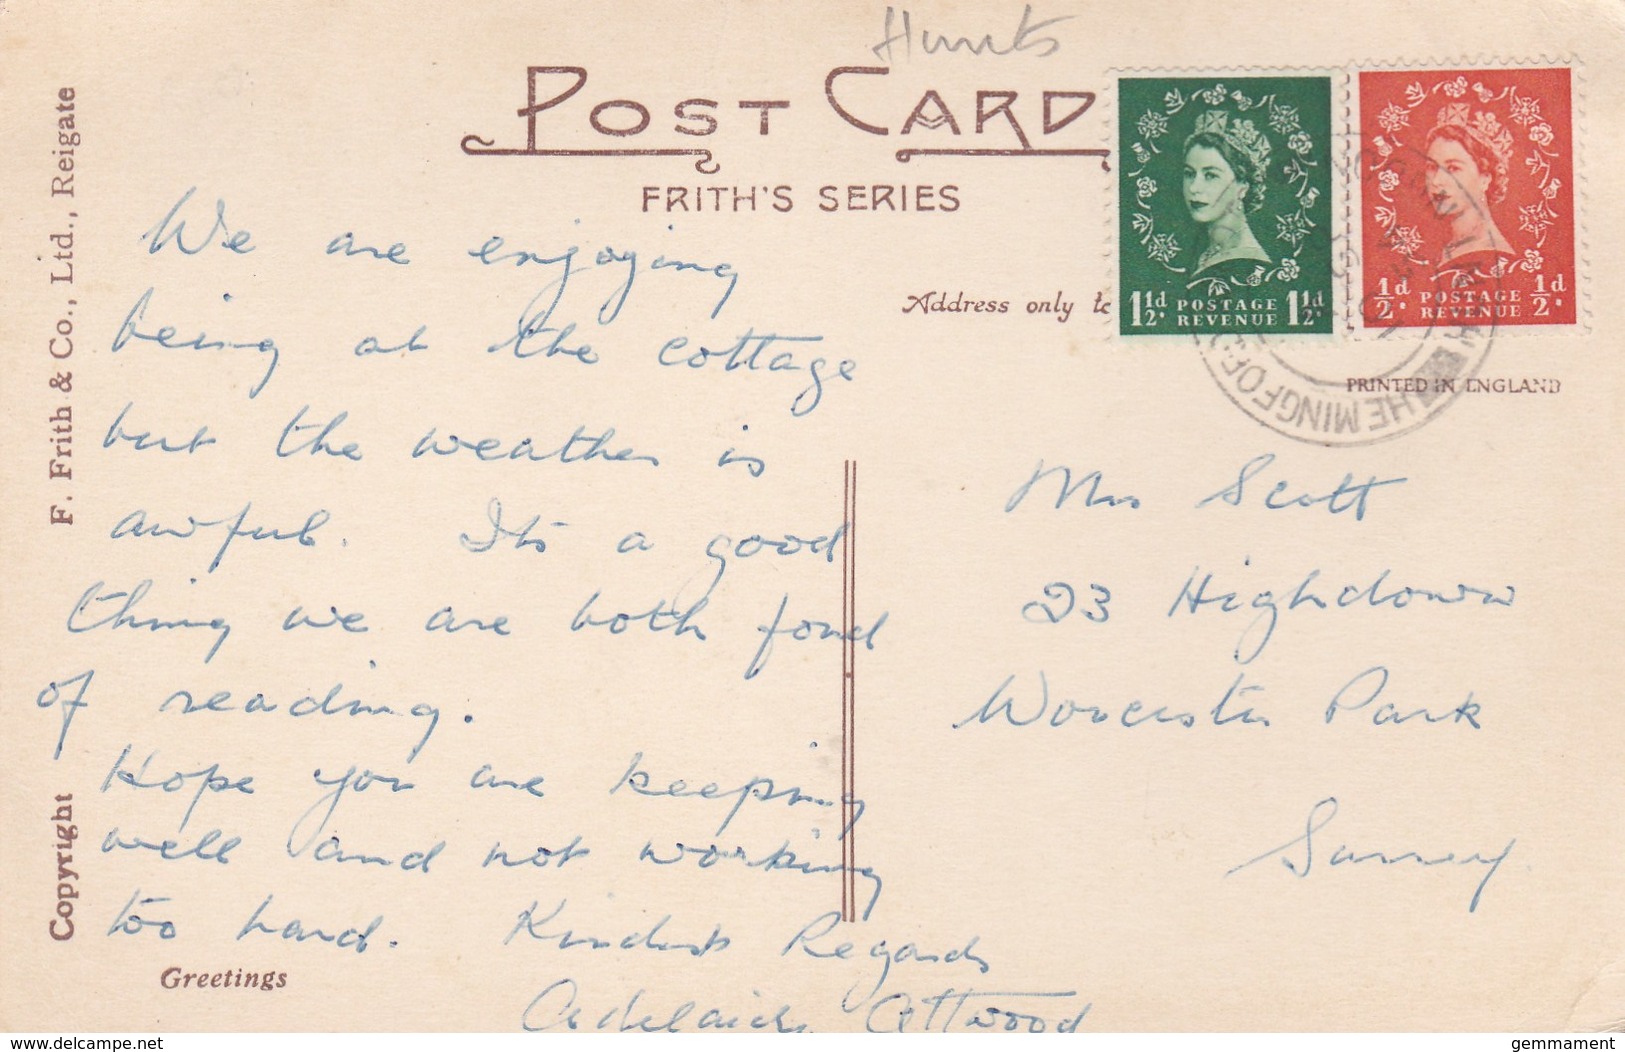 Hunts
POST CARD
FRITH'S SERIES
Address only to
1½d. POSTAGE REVENUE 1½d.
½d. POSTAGE REVENUE ½d.
PRINTED IN ENGLAND
HEMINGFORD
F. Frith & Co., Ltd., Reigate
Copyright
We are enjoying
being at the cottage
but the weather is
awful. Its a good
thing we are both fond
of reading.
Hope you are keeping
well and not working
too hard. Kindest Regards
Adelaide Attwood
Greetings
Mrs Scott
23 Highdown
Worcester Park
Surrey
delcampe.net
gemmament